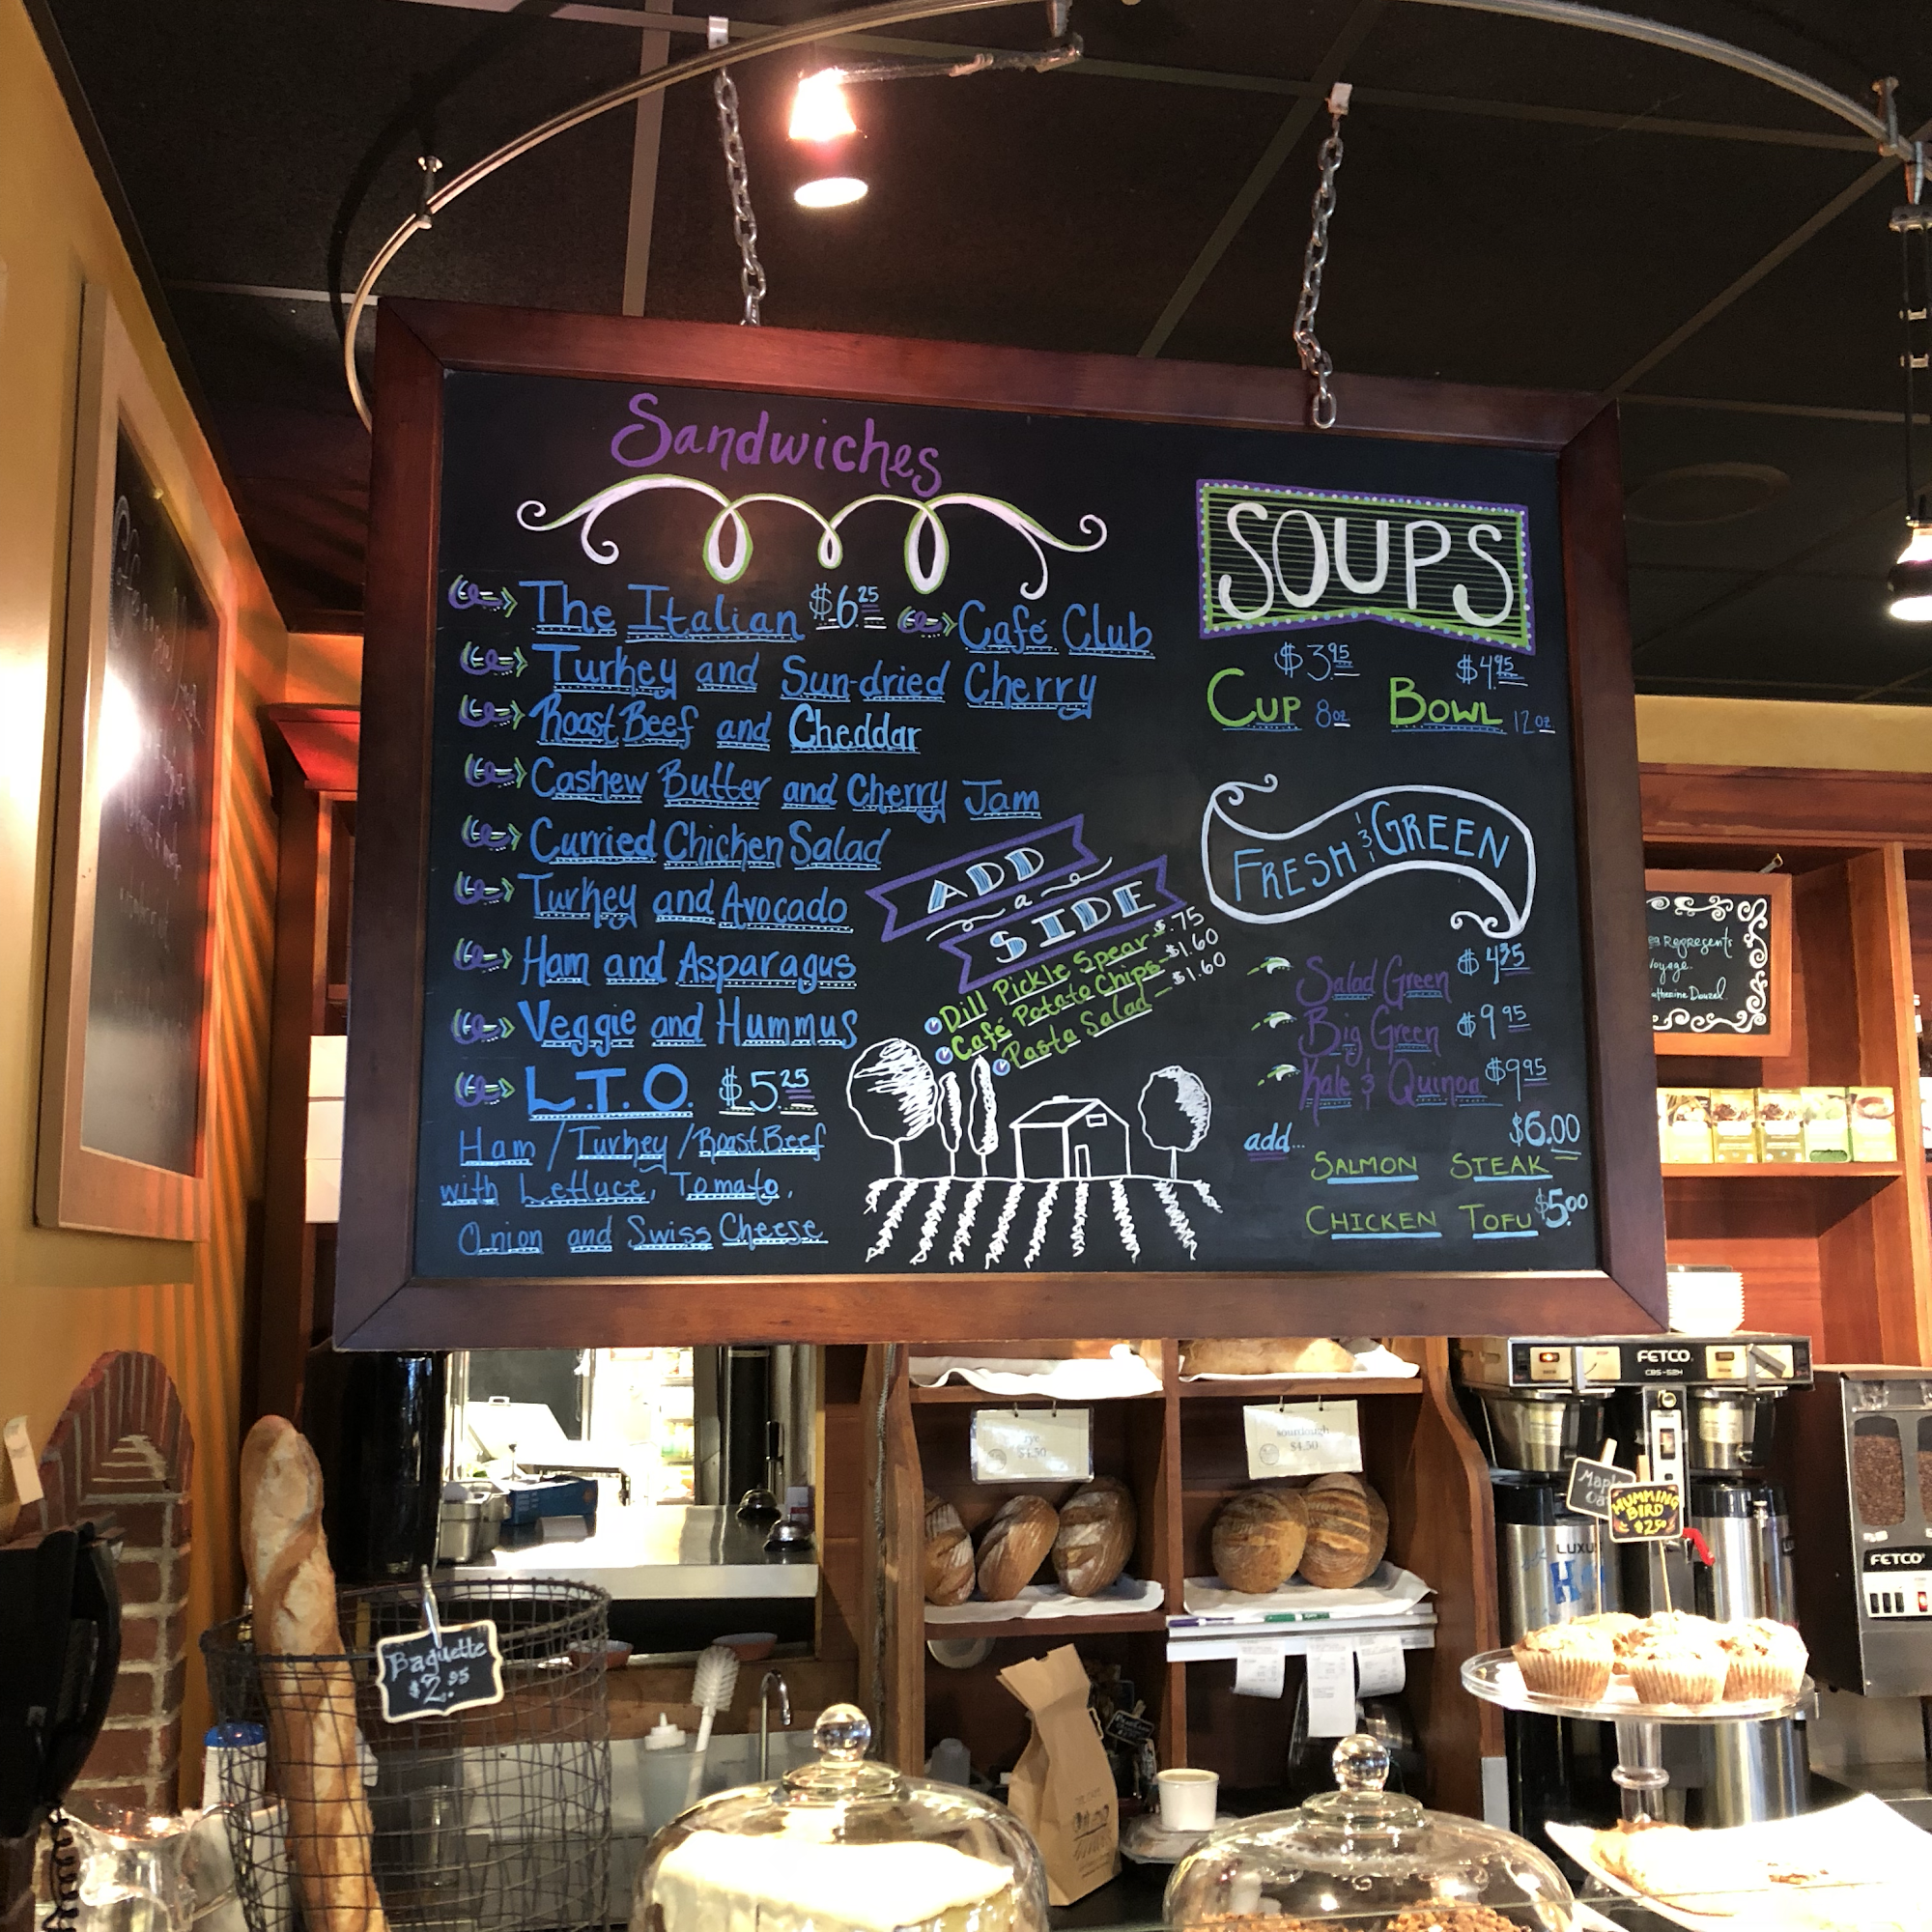 Sandwiches
The Italian $6.25
Café Club
Turkey and Sun-dried Cherry
Roast Beef and Cheddar
Cashew Butter and Cherry Jam
Curried Chicken Salad
Turkey and Avocado
Ham and Asparagus
Veggie and Hummus
L.T.O. $5.25
Ham / Turkey / Roast Beef
with Lettuce, Tomato,
Onion and Swiss Cheese
ADD
a
SIDE
Dill Pickle Spear - $.75
Café Potato Chips - $1.60
Pasta Salad - $1.60
SOUPS
$3.95 $4.95
CUP 8oz BOWL 12oz.
FRESH & GREEN
Salad Green $4.35
Big Green $9.95
Kale & Quinoa $9.95
$6.00
add...
SALMON STEAK
CHICKEN TOFU $5.00
Represents
Voyage.
FETCO
CBS-52H
rye
$4.50
sourdough
$4.50
Maple
HUMMING
BIRD
$2.50
LUXUS
FETCO
Baguette
$2.95